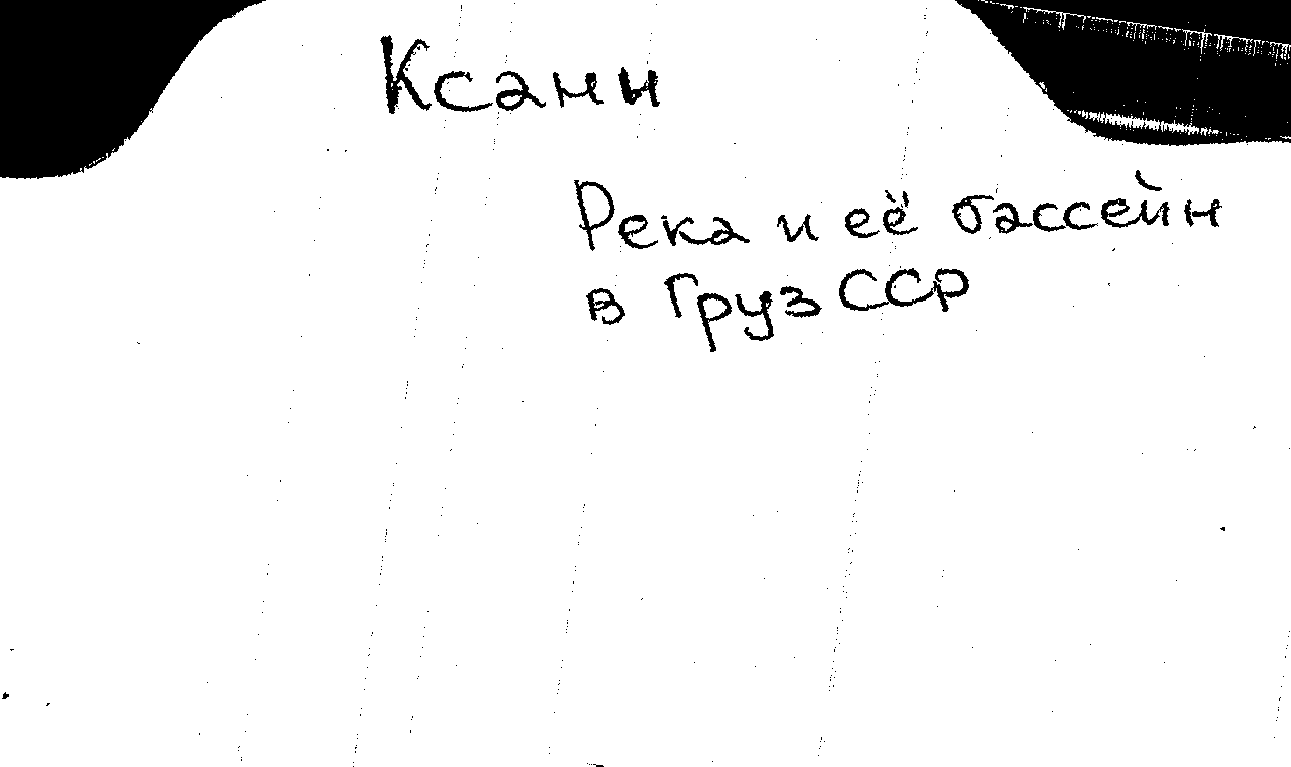 Ксани
Река и её бассейн
в ГрузССР